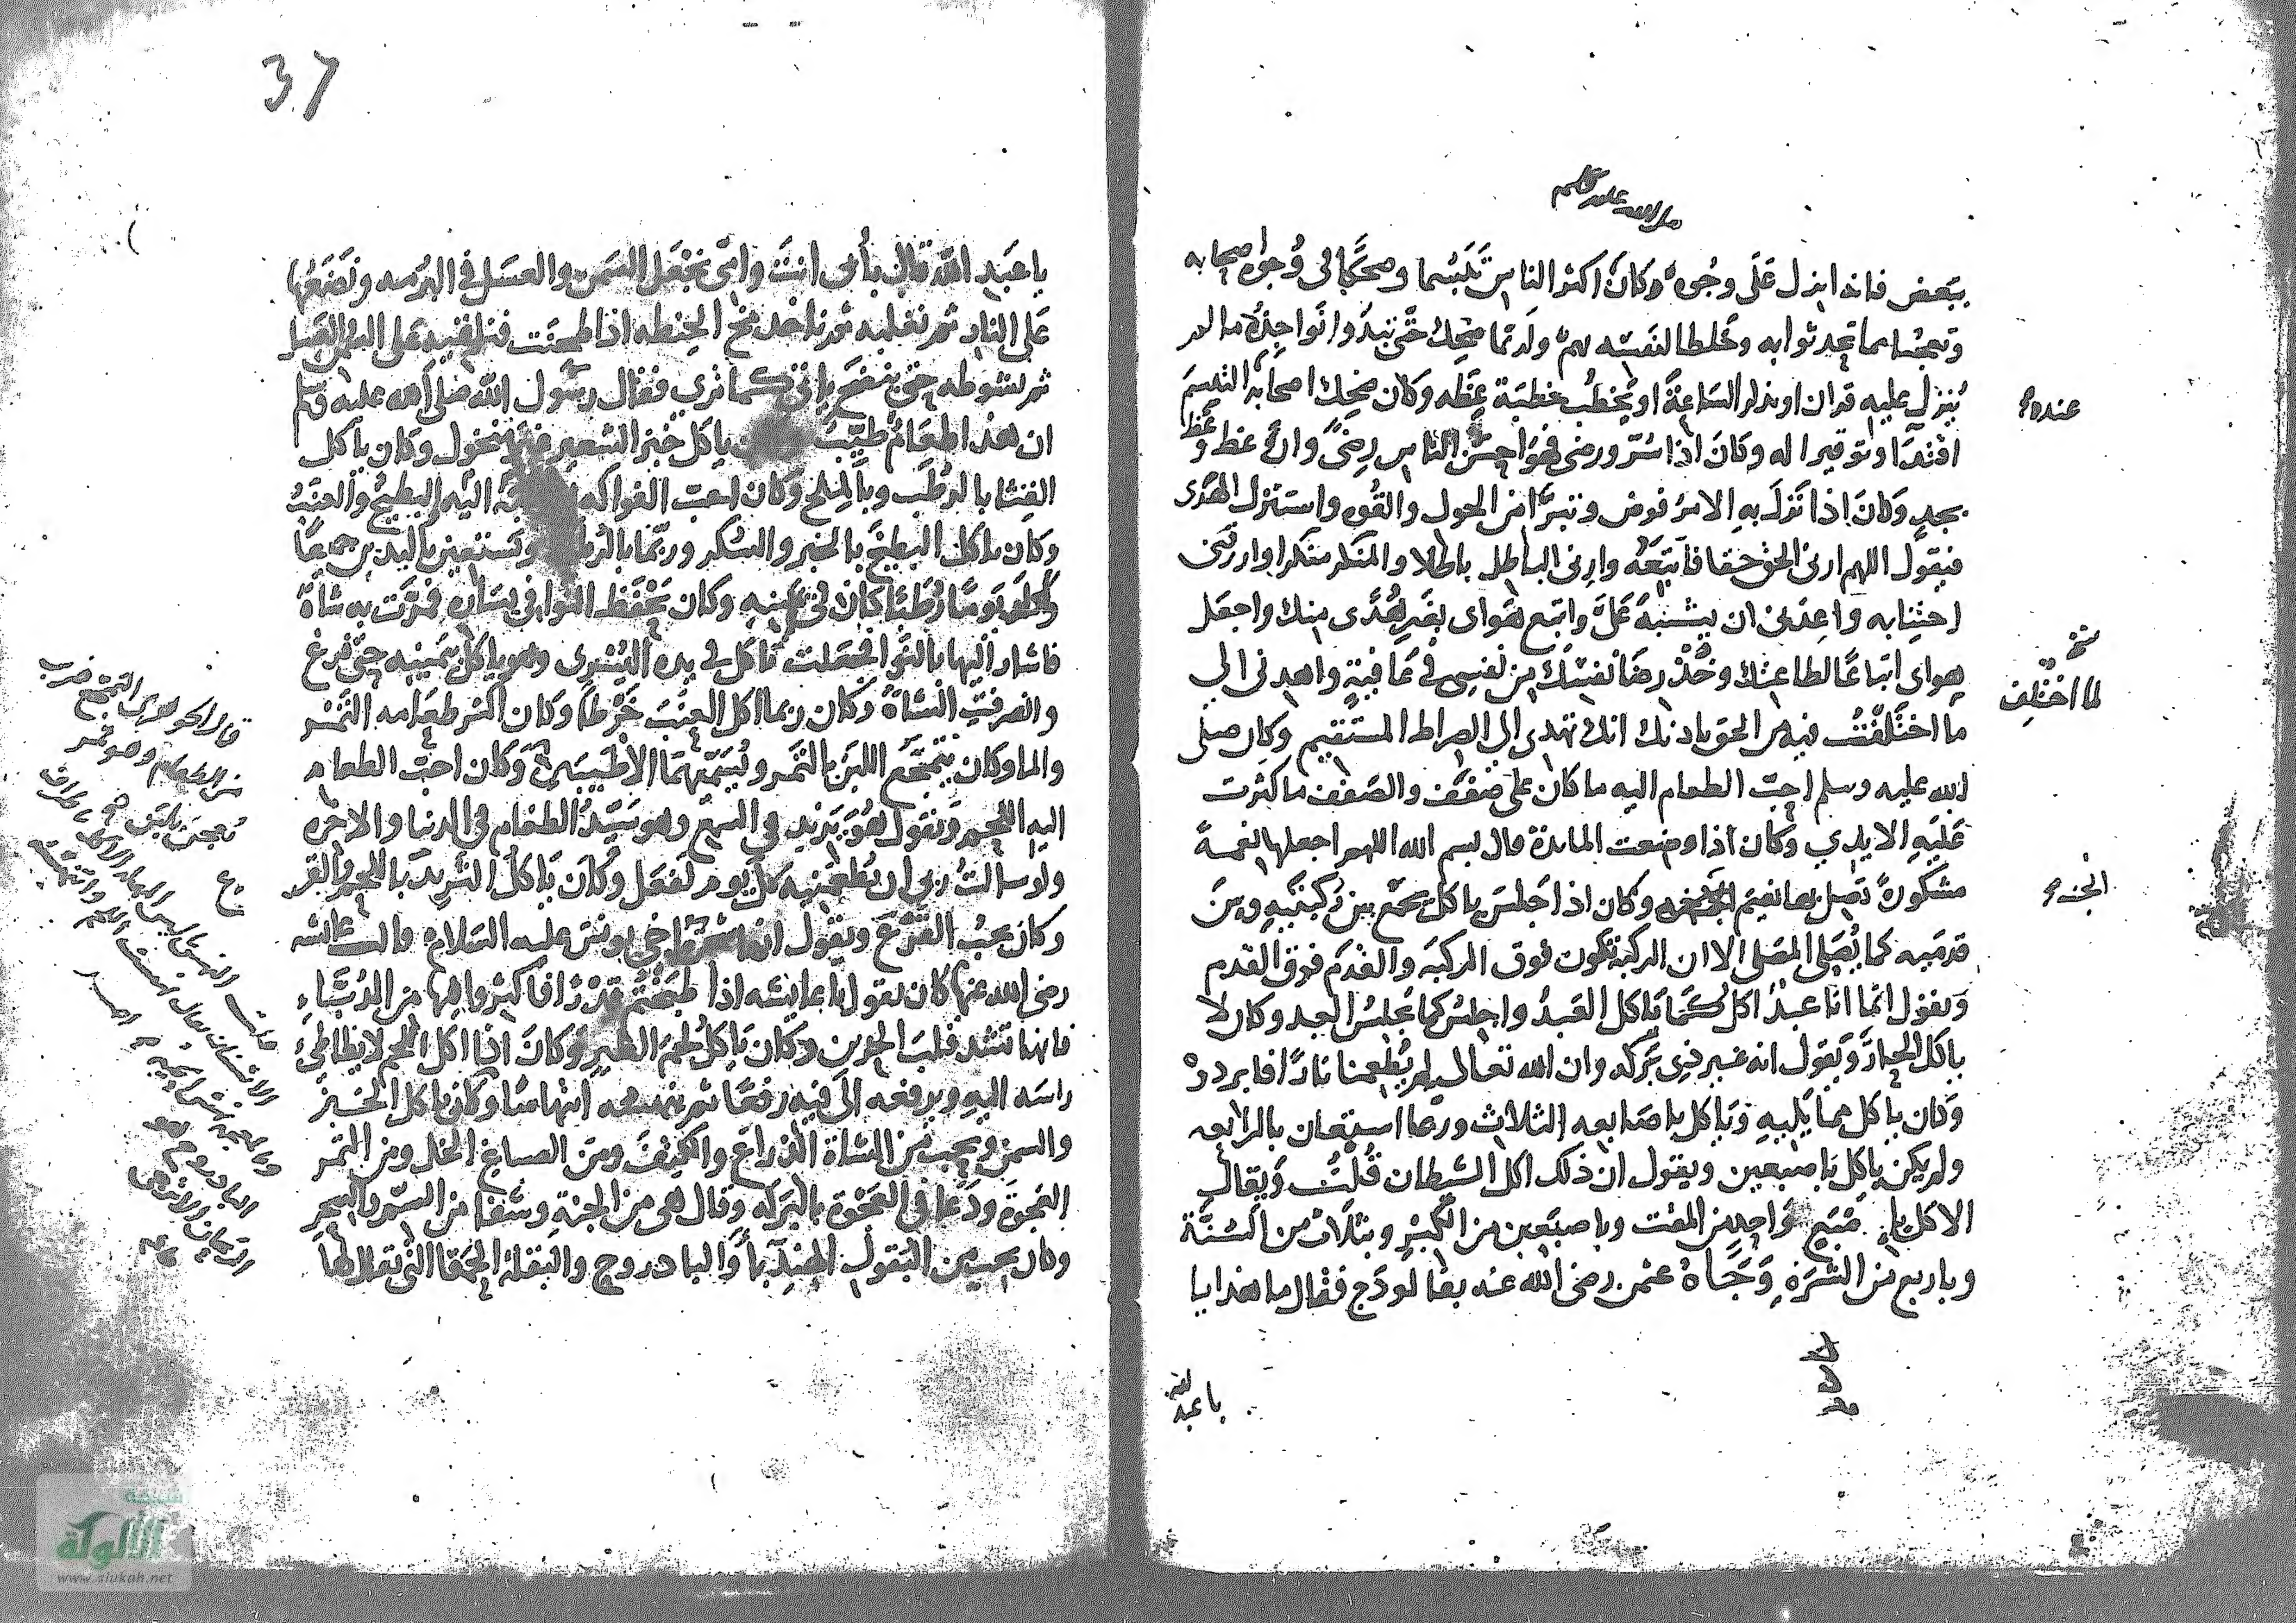 صلى الله عليه وسلم
ببعض فانه انزل على وجوه وكان اكثر الناس تبسما وضحكا في وجوه اصحابه
وتعجبا مما تحدثوا به وخلطا لنفسه بهم ولربما ضحك حتى تبدوا نواجذه ما لم
ينزل عليه قران او يذكر الساعة او يخطب خطبة عظه وكان ضحك اصحابه التبسم
عنده
اقتدآ وتوقيرا له وكان اذا سر ورضى فهو احسن الناس رضىً وان وعظ وعظ
بجد وكان اذا نزل به الامر فوض وتبرَّا من الحول والقوه واستنزل الهدى
فيقول اللهم ارنى الحق حقا فاتبعه وارنى الباطل باطلا والمنكر منكرا وارزقنى
اجتنابه واعذنى ان يشتبه علىَّ واتبع هواى بغير هُدًى منك واجعل
هواى اتباعًا لطاعتك وخذ رضا نفسك من نفسى في عافية واهدنى الي
لما اختلف
ما اختلفت فيه من الحق باذنك انك تهدى الي الصراط المستقيم وكان صلى
الله عليه وسلم احبّ الطعام اليه ما كان على ضفف والضفف ما كثرت
عليه الايدي وكان اذا وضعت المائدة قال بسم الله اللهم اجعلها نعمة
مشكورة تصل بها نعيم الجنه وكان اذا جلس ياكل يجمع بين ركبتيه وبين
الجنه
قدميه كما يُصَلى المصلى الا ان الركبة تكون فوق الركبه والقدم فوق القدم
ويقول انما انا عبدٌ اكل كما ياكل العبدُ واجلس كما يجلس العبد وكان لا
ياكل الحارّ ويقول انه غير ذي بركه وان الله تعالي لم يُطعمنا نارًا فابردوه
وكان ياكل مما يليه وياكل باصابعه الثلاث وربما استعان بالرابعه
ولم يكن ياكل باصبعين ويقول ان ذلك اكل الشيطان قُلتُ ويقال
الاكل باصبع واحد من المقت وباصبعين من الكبْر وبثلاث من السُنَّة
وباربع من الشره وجاه عثمن رضى الله عنه بفالوذج فقال ما هذا يا
يا عبد الله
37
يا عبد الله قال بأبي انت وامى نجعل السمن والعسل في البرمه ونضعها
على النار ثم نغليه ثم ناخذ مخ الحنطه اذا طحنت فنلقيه على السمن والعسل
ثم نسوطه حتى ينضج فياتى كما ترى فقال رسول الله صلى الله عليه وسلم
ان هذا طعامٌ طيّب ياكل خبز الشعير غير منخول وكان ياكل
القثا بالرطب وبالملح وكان احب الفواكه اليه البطيخ والعنب
وكان ياكل البطيخ بالخبز والسكر وربما بالرطب ويستعين باليدين جميعًا
واكل يومًا رُطبًا كان في يمينه وكان يحفظ النوا في يساره فمرّت به شاة
فاشار اليها بالنوا فجعلت تاكل في يده اليسرى وهو ياكل بيمينه حتى فرغ
وانصرفت الشاة وكان ربما اكل العنب خرْطًا وكان اكثر طعامه التمر
والما وكان يتمجّع اللبن بالتمر ويُسميهما الأطيبين وكان احبّ الطعام
اليه اللحم ويقول هو يزيد في السمع وهو سَيّدُ الطعام في الدنيا والاخره
ولو سالتُ ربي ان يُطعمنيه كل يوم لفعل وكان ياكل الثريد باللحم والقرع
وكان يحبُ القرْع ويقول انها شجرة اخي يونس عليه السلام قالت عائشه
رضى الله عنها كان يقول يا عايشه اذا طبختم قدْرًا فاكثروا فيها من الدُبَّاءِ
فانها تشد قلب الحزين وكان ياكل لحم الطير وكان اذا اكل اللحم لا يطاطئ
راسه اليه ويرفعه الى فيه رفعًا ثم ينهسه انتهاسًا وكان ياكل الخبز
والسمن ويحب من الشاة الذراع والكتف ومن الصباغ الخل ومن التمر
العجوة ودعا في العجوة بالبركه وقال هى من الجنة وشفا من السّم والسحر
وكان يحب من البقول الهندبا والباذروج والبقلة الحمقا التى يقال لها
قال الجوهرى التمجع ضرب
من الطعام وهو تمر
يُعجن بلبن